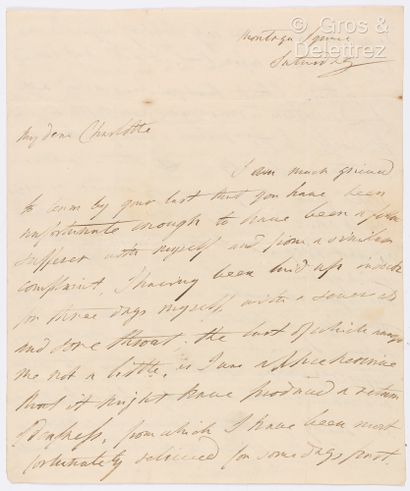 © Gros &
Delettrez
Montagu Square
Saturday
My dear Charlotte
I am much grieved
to learn by your last that you have been
unfortunate enough to have been a fellow
sufferer with myself and from a similar
complaint, I having been laid up in bed
for three days myself with a severe
and sore throat. the last of which
me not a little, as I am apprehensive
that it might have produced a return
of deafness, from which I have been most
fortunately relieved for some days past.